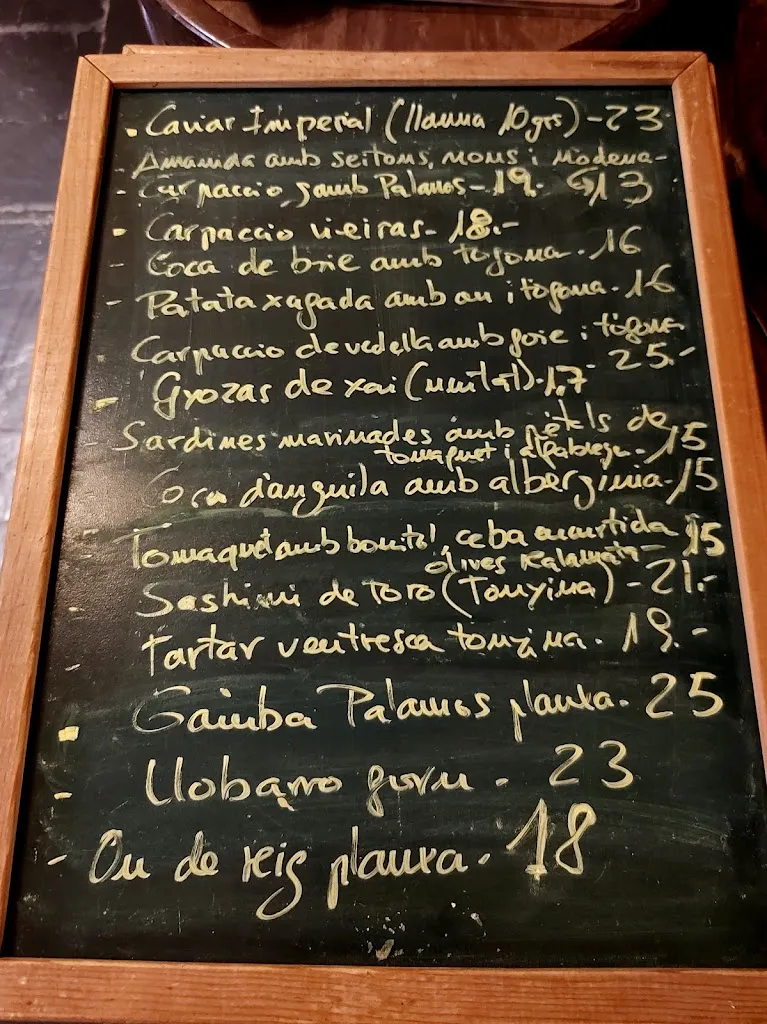 . Caviar Imperial (llauna 10grs) - 23
- Amanida amb seitons, nous i Modena -
- Carpaccio gamb Palamos - 19.- ↳ 13
- Carpaccio vieiras - 18.-
- Coca de brie amb tofona . 16
- Patata xafada amb ou i tofona . 16
- Carpaccio de vedella amb foie i tofona
25.-
- Gyozas de xai (unitat) . 1,7
- Sardines marinades amb pètals de
tomaquet i alfabrega - 15
Coca d'anguila amb alberginia - 15
- Tomaquet amb bonitol, ceba encurtida 15
olives Kalamata -
- Sashimi de Toro (Tonyina) - 21.-
- Tartar ventresca tonyina . 19.-
- Gamba Palamos planxa . 25
- Llobarro forn - 23
- Ou de reig planxa . 18